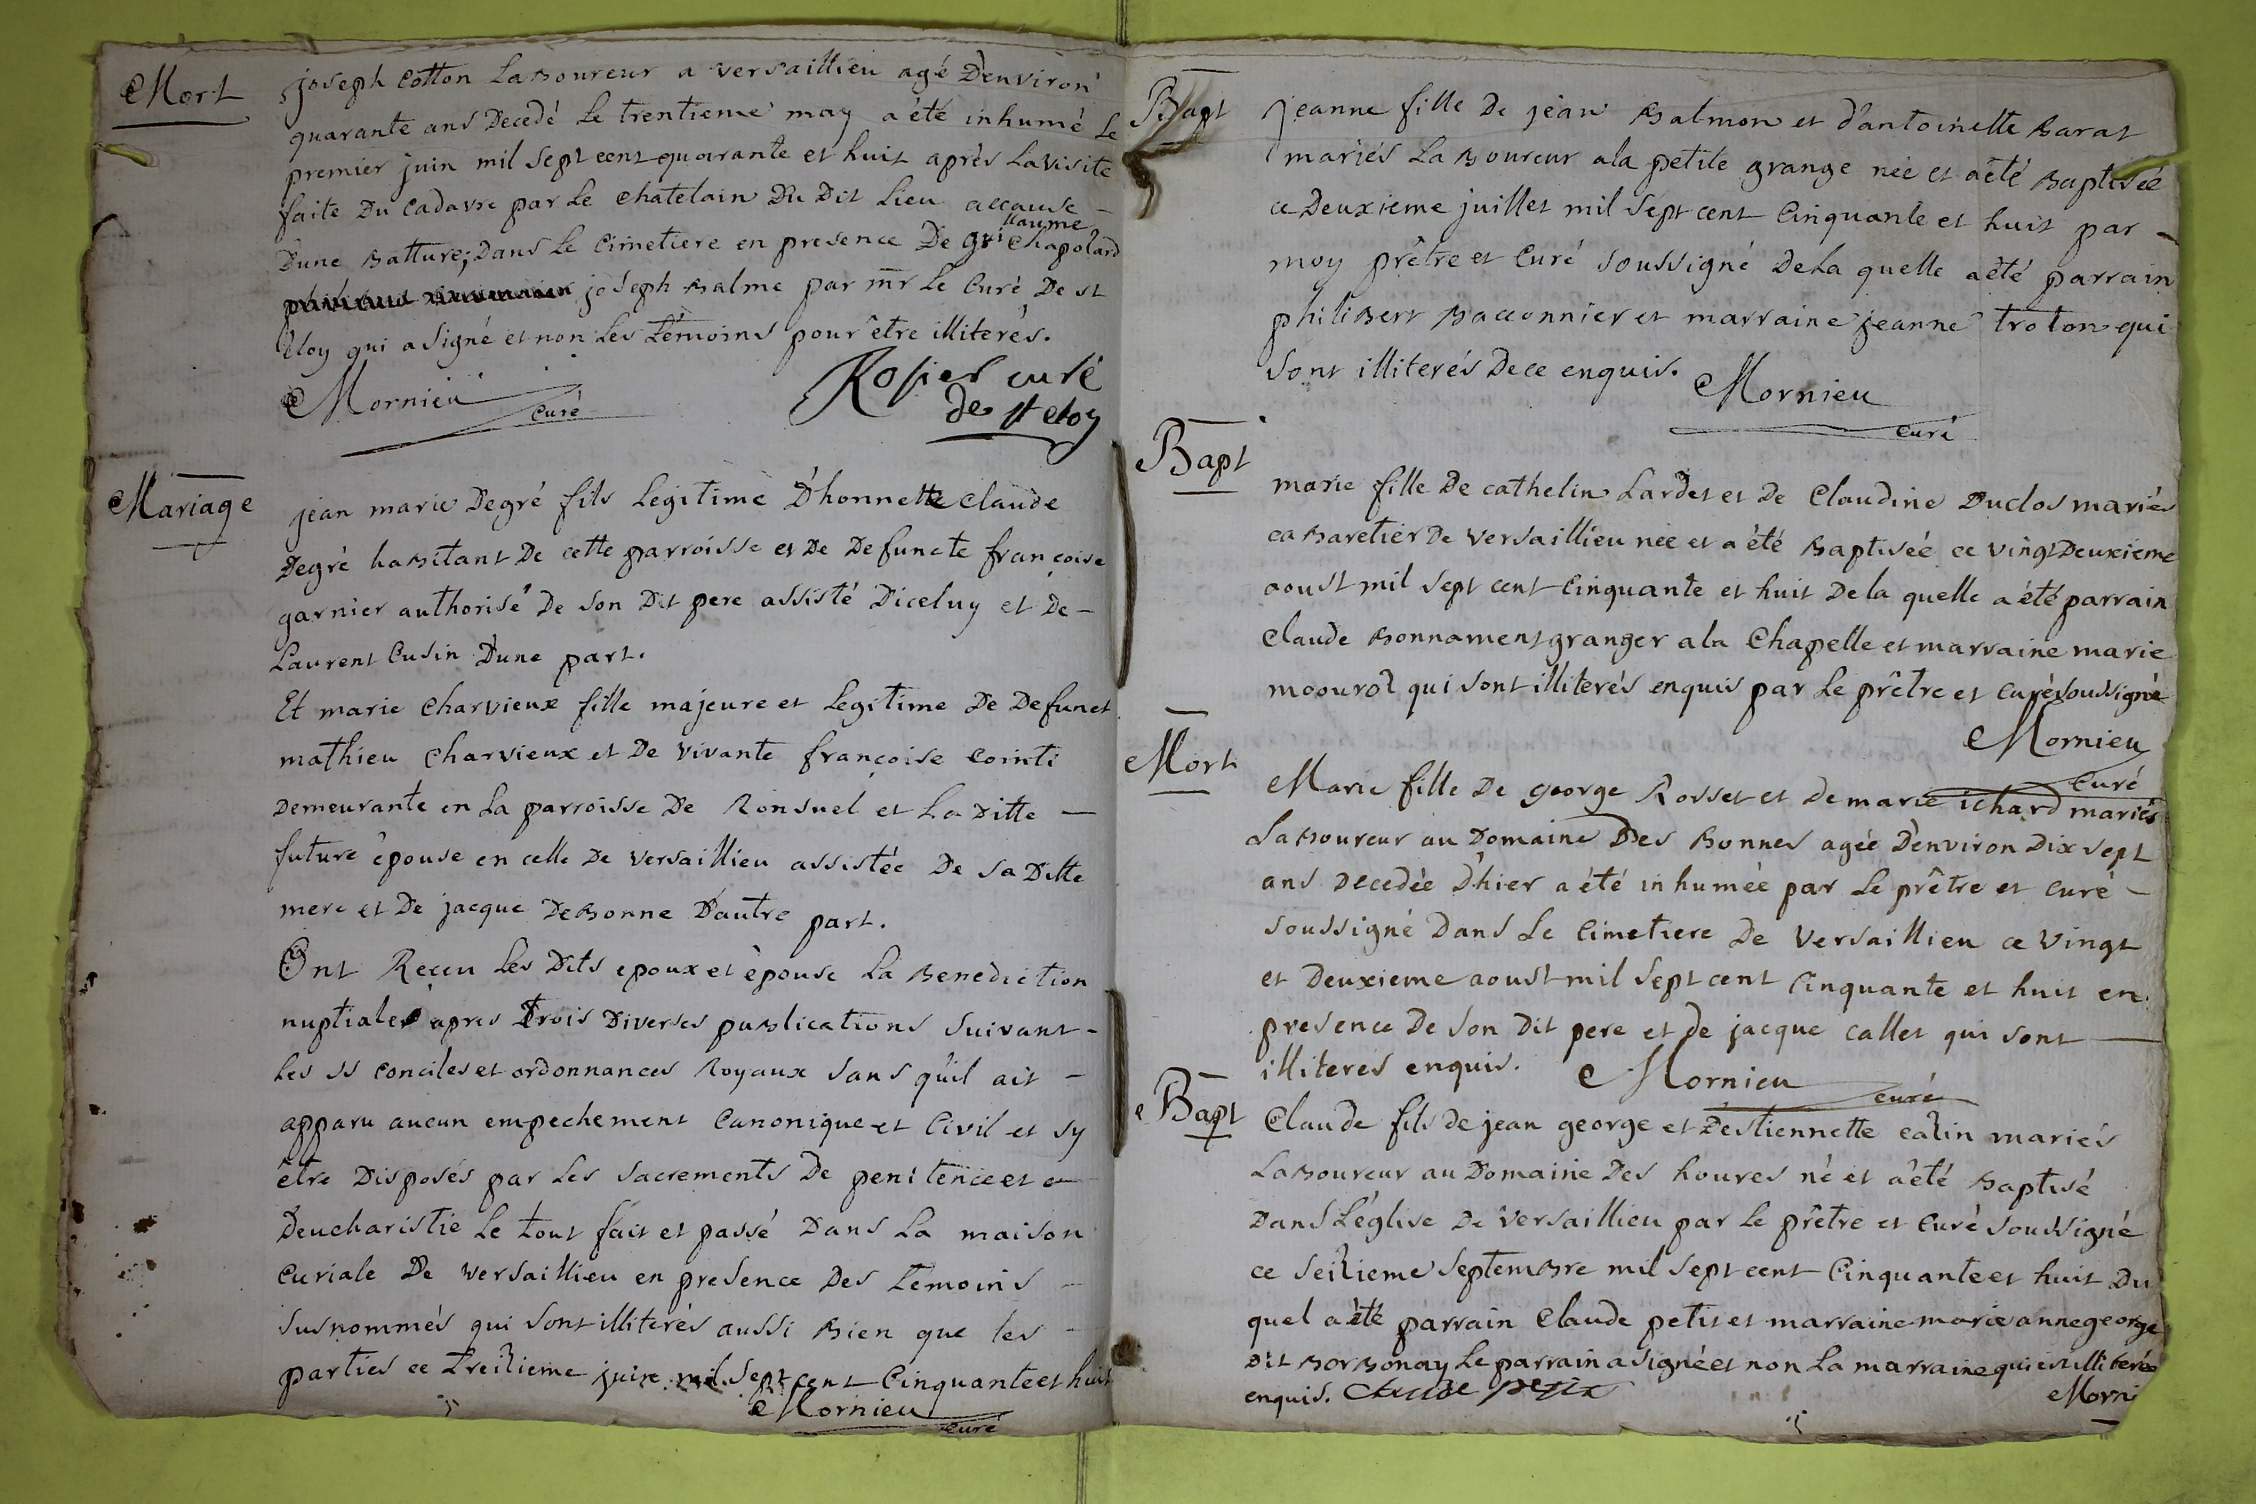 Mort
joseph cotton Laboureur a versaillieu agé D'environ
quarante ans Decedé Le trentieme may a été inhumé Le
premier juin mil sept cent quarante et huit après La visite
faite Du cadavre par Le chatelain Du Dit Lieu accause –
D'une Batture; Dans Le cimetiere en presence De guillaume chapolard
joseph Balme par mr Le curé De st
Eloy qui a signé et non Les témoins pour être illiterés.
Mornieu curé
Rosier curé
de st eloy
Mariage
jean marie Degré fils Legitime D'honnette claude
Degré habitant De cette parroisse et De Defuncte françoise
garnier authorisé De son Dit pere assisté D'iceluy et De –
Laurent Cusin D'une part.
Et marie charvieux fille majeure et Legitime De Defunct
mathieu charvieux et De vivante françoise cointi
Demeurante en La parroisse De Ronsuel et La Ditte –
future épouse en celle De versaillieu assistée De sa Ditte
mere et De jacque DeBonne D'autre part.
Ont Reçeu Les Dits epoux et épouse La Benediction
nuptiale apres Trois Diverses publications suivant –
Les ss conciles et ordonnances Royaux sans qu'il ait –
apparu aucun empechement Canonique et Civil et sy
être Disposés par Les sacrements De penitence et
D'eucharistie Le tout fait et passé Dans La maison
Curiale De versaillieu en presence Des Témoins –
susnommés qui sont illiterés aussi Bien que les –
parties ce Treizieme juin mil sept cent Cinquante et huit
Mornieu
curé
Bapt
jeanne fille De jean Balmon et d'antoinette Barat
mariés Laboureur a la petite grange née et a été Baptisée
ce Deuxieme juillet mil sept cent Cinquante et huit par –
moy prêtre et Curé soussigné De La quelle a été parrain
philibert Baconnier et marraine jeanne troton qui
sont illiterés De ce enquis.
Mornieu
curé
Bapt
marie fille De cathelin Lardet et De Claudine Duclos mariés
cabaretier De versaillieu née et a été Baptisée ce vingt Deuxieme
aoust mil sept cent Cinquante et huit De la quelle a été parrain
Claude Bonnament granger a la Chapelle et marraine marie
qui sont illiterés enquis par Le prêtre et Curé soussigné
Mornieu
Curé
Mort
Marie fille De george Rosset et de marie ichard mariés
Laboureur au Domaine Des Bonnes agée D'environ Dix sept
ans Decedée D'hier a été inhumée par Le prêtre et curé –
soussigné Dans Le Cimetiere De versaillieu ce vingt
et Deuxieme aoust mil sept cent Cinquante et huit en
presence De son Dit pere et de jacque callet qui sont –
illiteres enquis. Mornieu
curé
Bapt
Claude fils de jean george et D'estiennette cazin mariés
Laboureur au Domaine Des houres né et a été Baptisé
Dans L'église De versaillieu par Le prêtre et Curé soussigné
ce seizieme septembre mil sept cent Cinquante et huit Du
quel a été parrain Claude petit et marraine marie anne george
Dit Borbonay Le parrain a signé et non La marraine qui est illiterée
enquis. claude petit
Morni